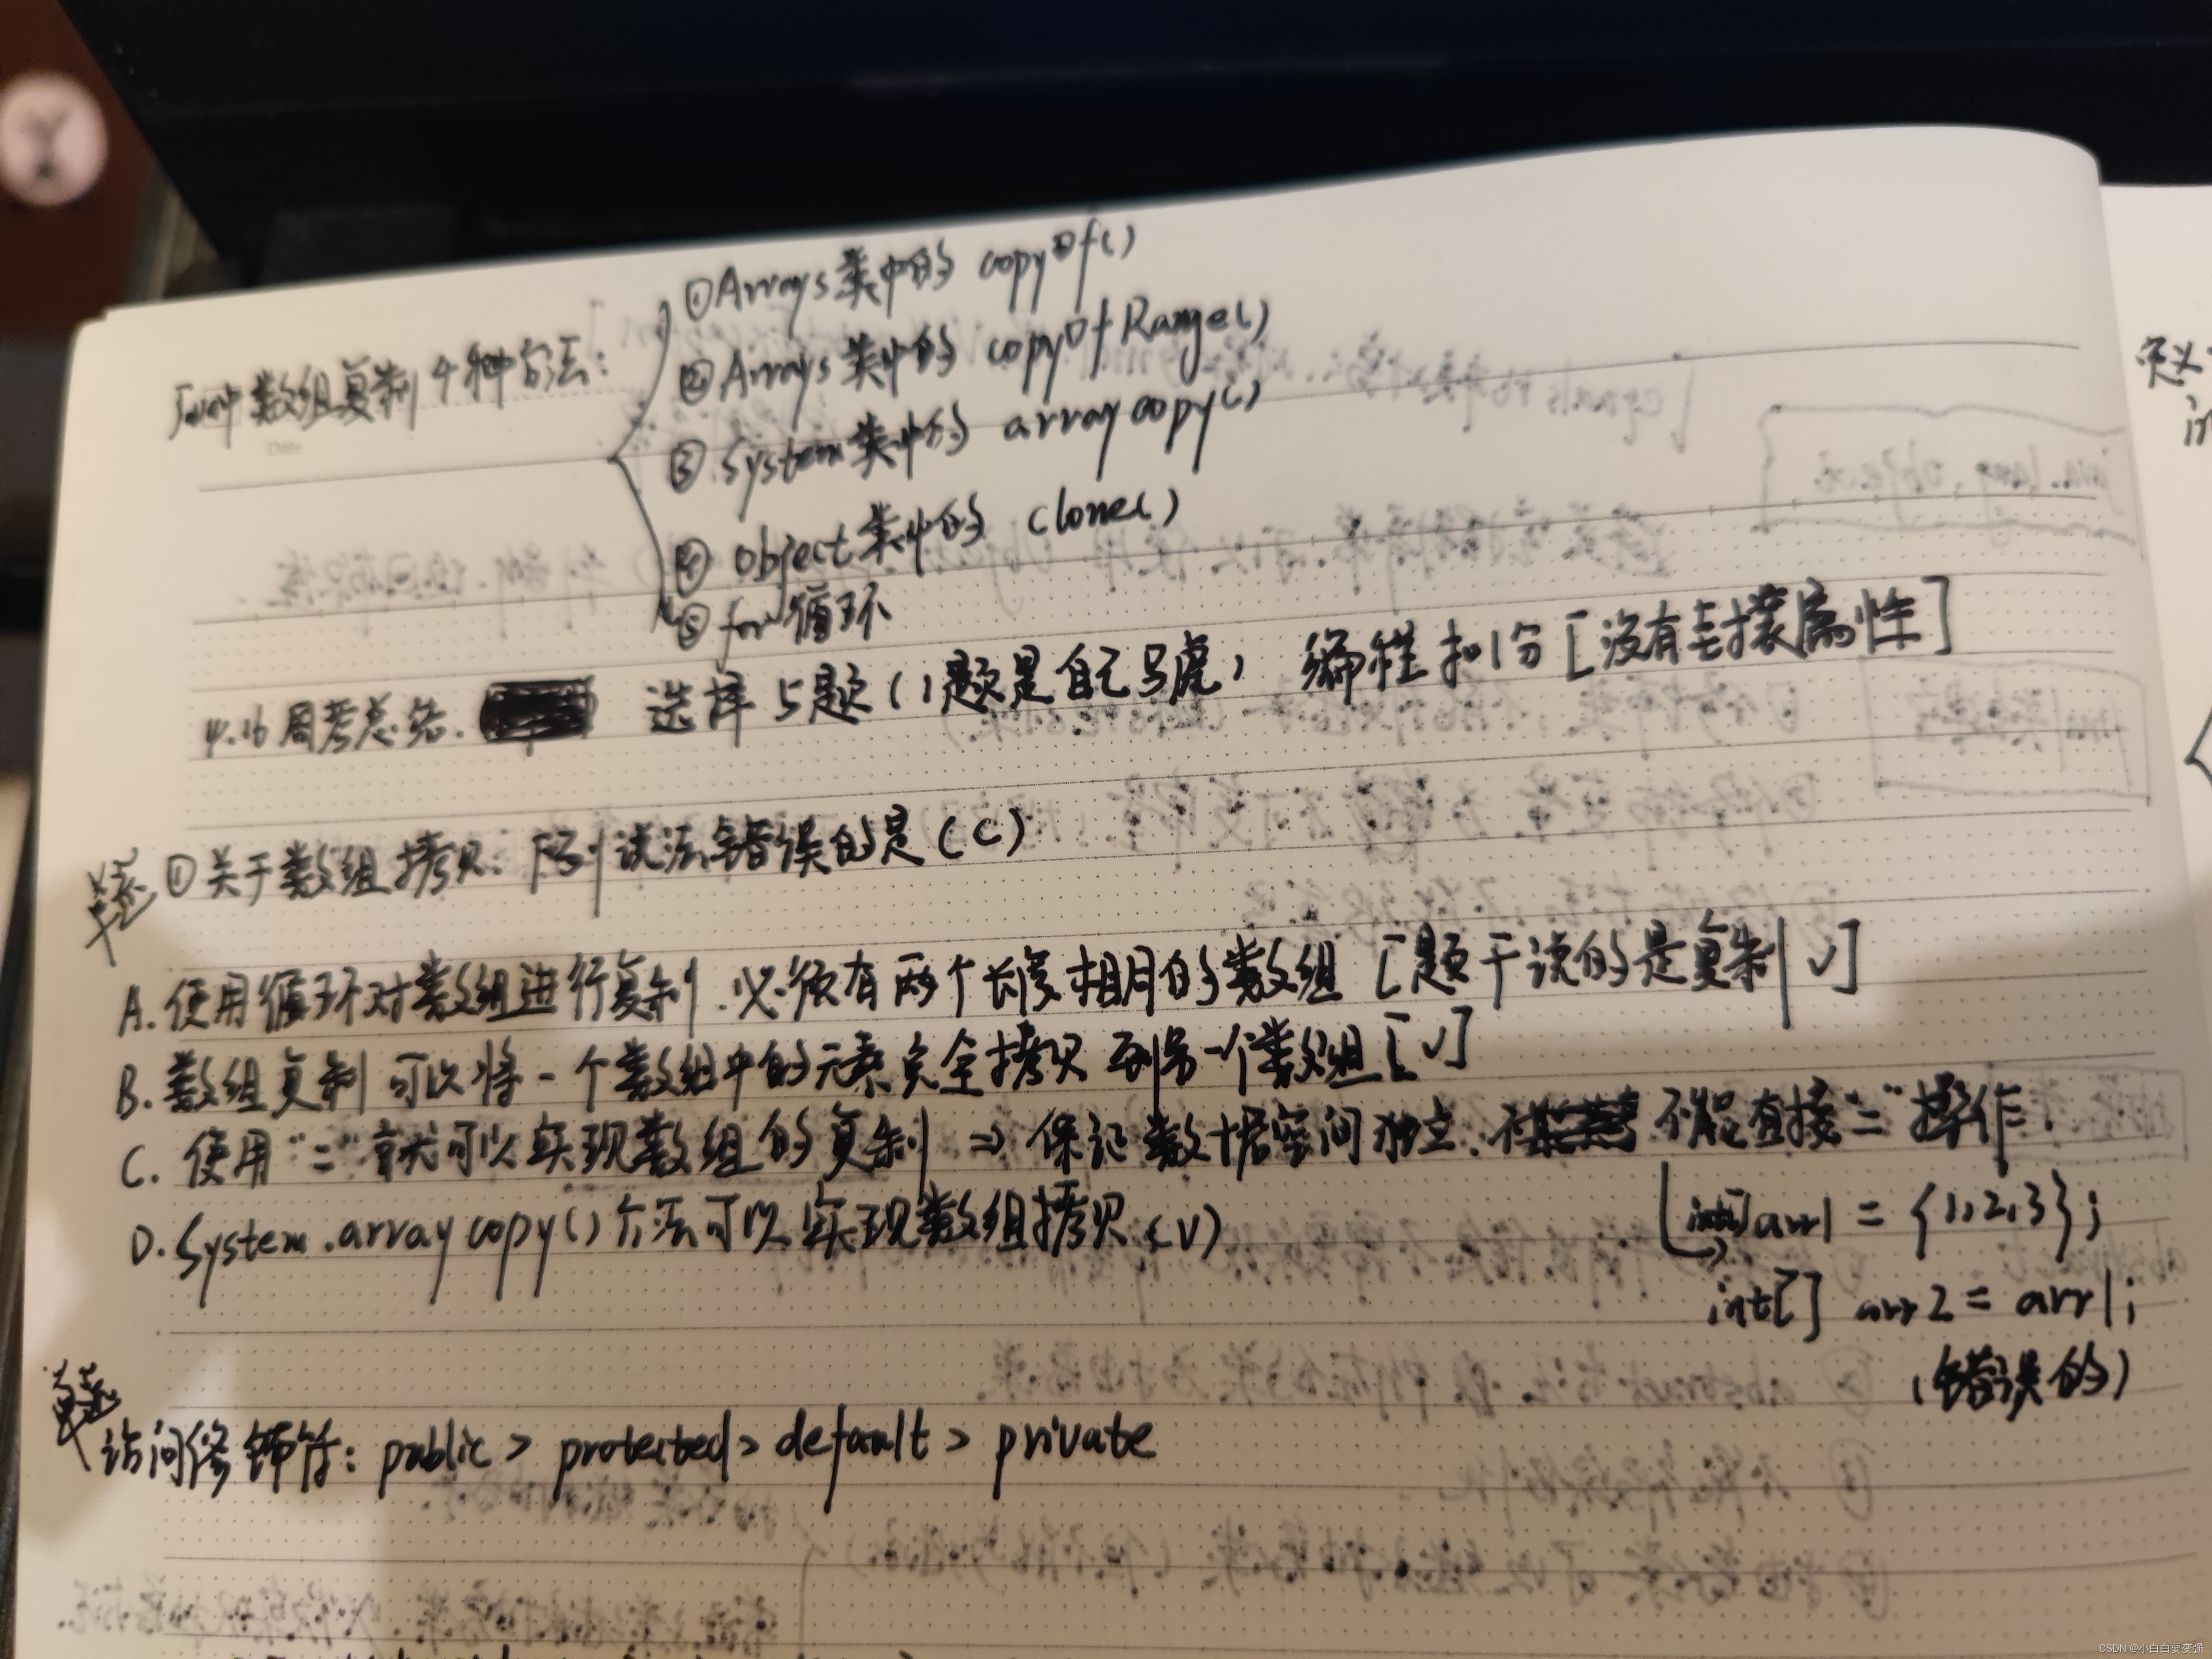 Java中数组复制4种方法:
①Arrays类中的 copyOf()
②Arrays类中的 copyOfRange()
③System类中的 arraycopy()
④object类中的 clone()
⑤for循环
Date
4.16周考总结. 选择5题(1题是自己马虎) 编程扣1分[没有封装属性]
单选 ①关于数组拷贝、下列说法错误的是(C)
A.使用循环对数组进行复制.必须有两个长度相同的数组[题干说的是复制√]
B.数组复制可以将一个数组中的元素完全拷贝到另一个数组[√]
C.使用"="就可以实现数组的复制 => 保证数据空间独立.不能直接"="操作.
int[]arr1 = {1,2,3};
D.System.arraycopy()方法可以实现数组拷贝(√)
int[] arr2 = arr1;
(错误的)
单选
访问修饰符: public > protected > default > private
定义
CSDN @小白白要变强